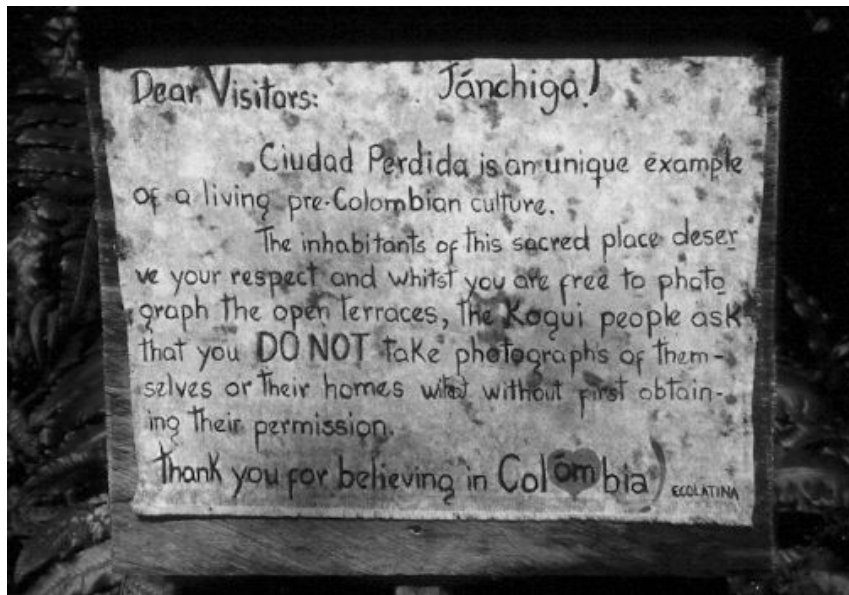 Dear Visitors: Jánchiga!
Ciudad Perdida is an unique example
of a living pre-Colombian culture.
The inhabitants of this sacred place deser
ve your respect and whitst you are free to photo
graph the open terraces, the Kogui people ask
that you DO NOT take photographs of them-
selves or their homes without first obtain-
ing their permission.
Thank you for believing in Colombia)
ECOLATINA